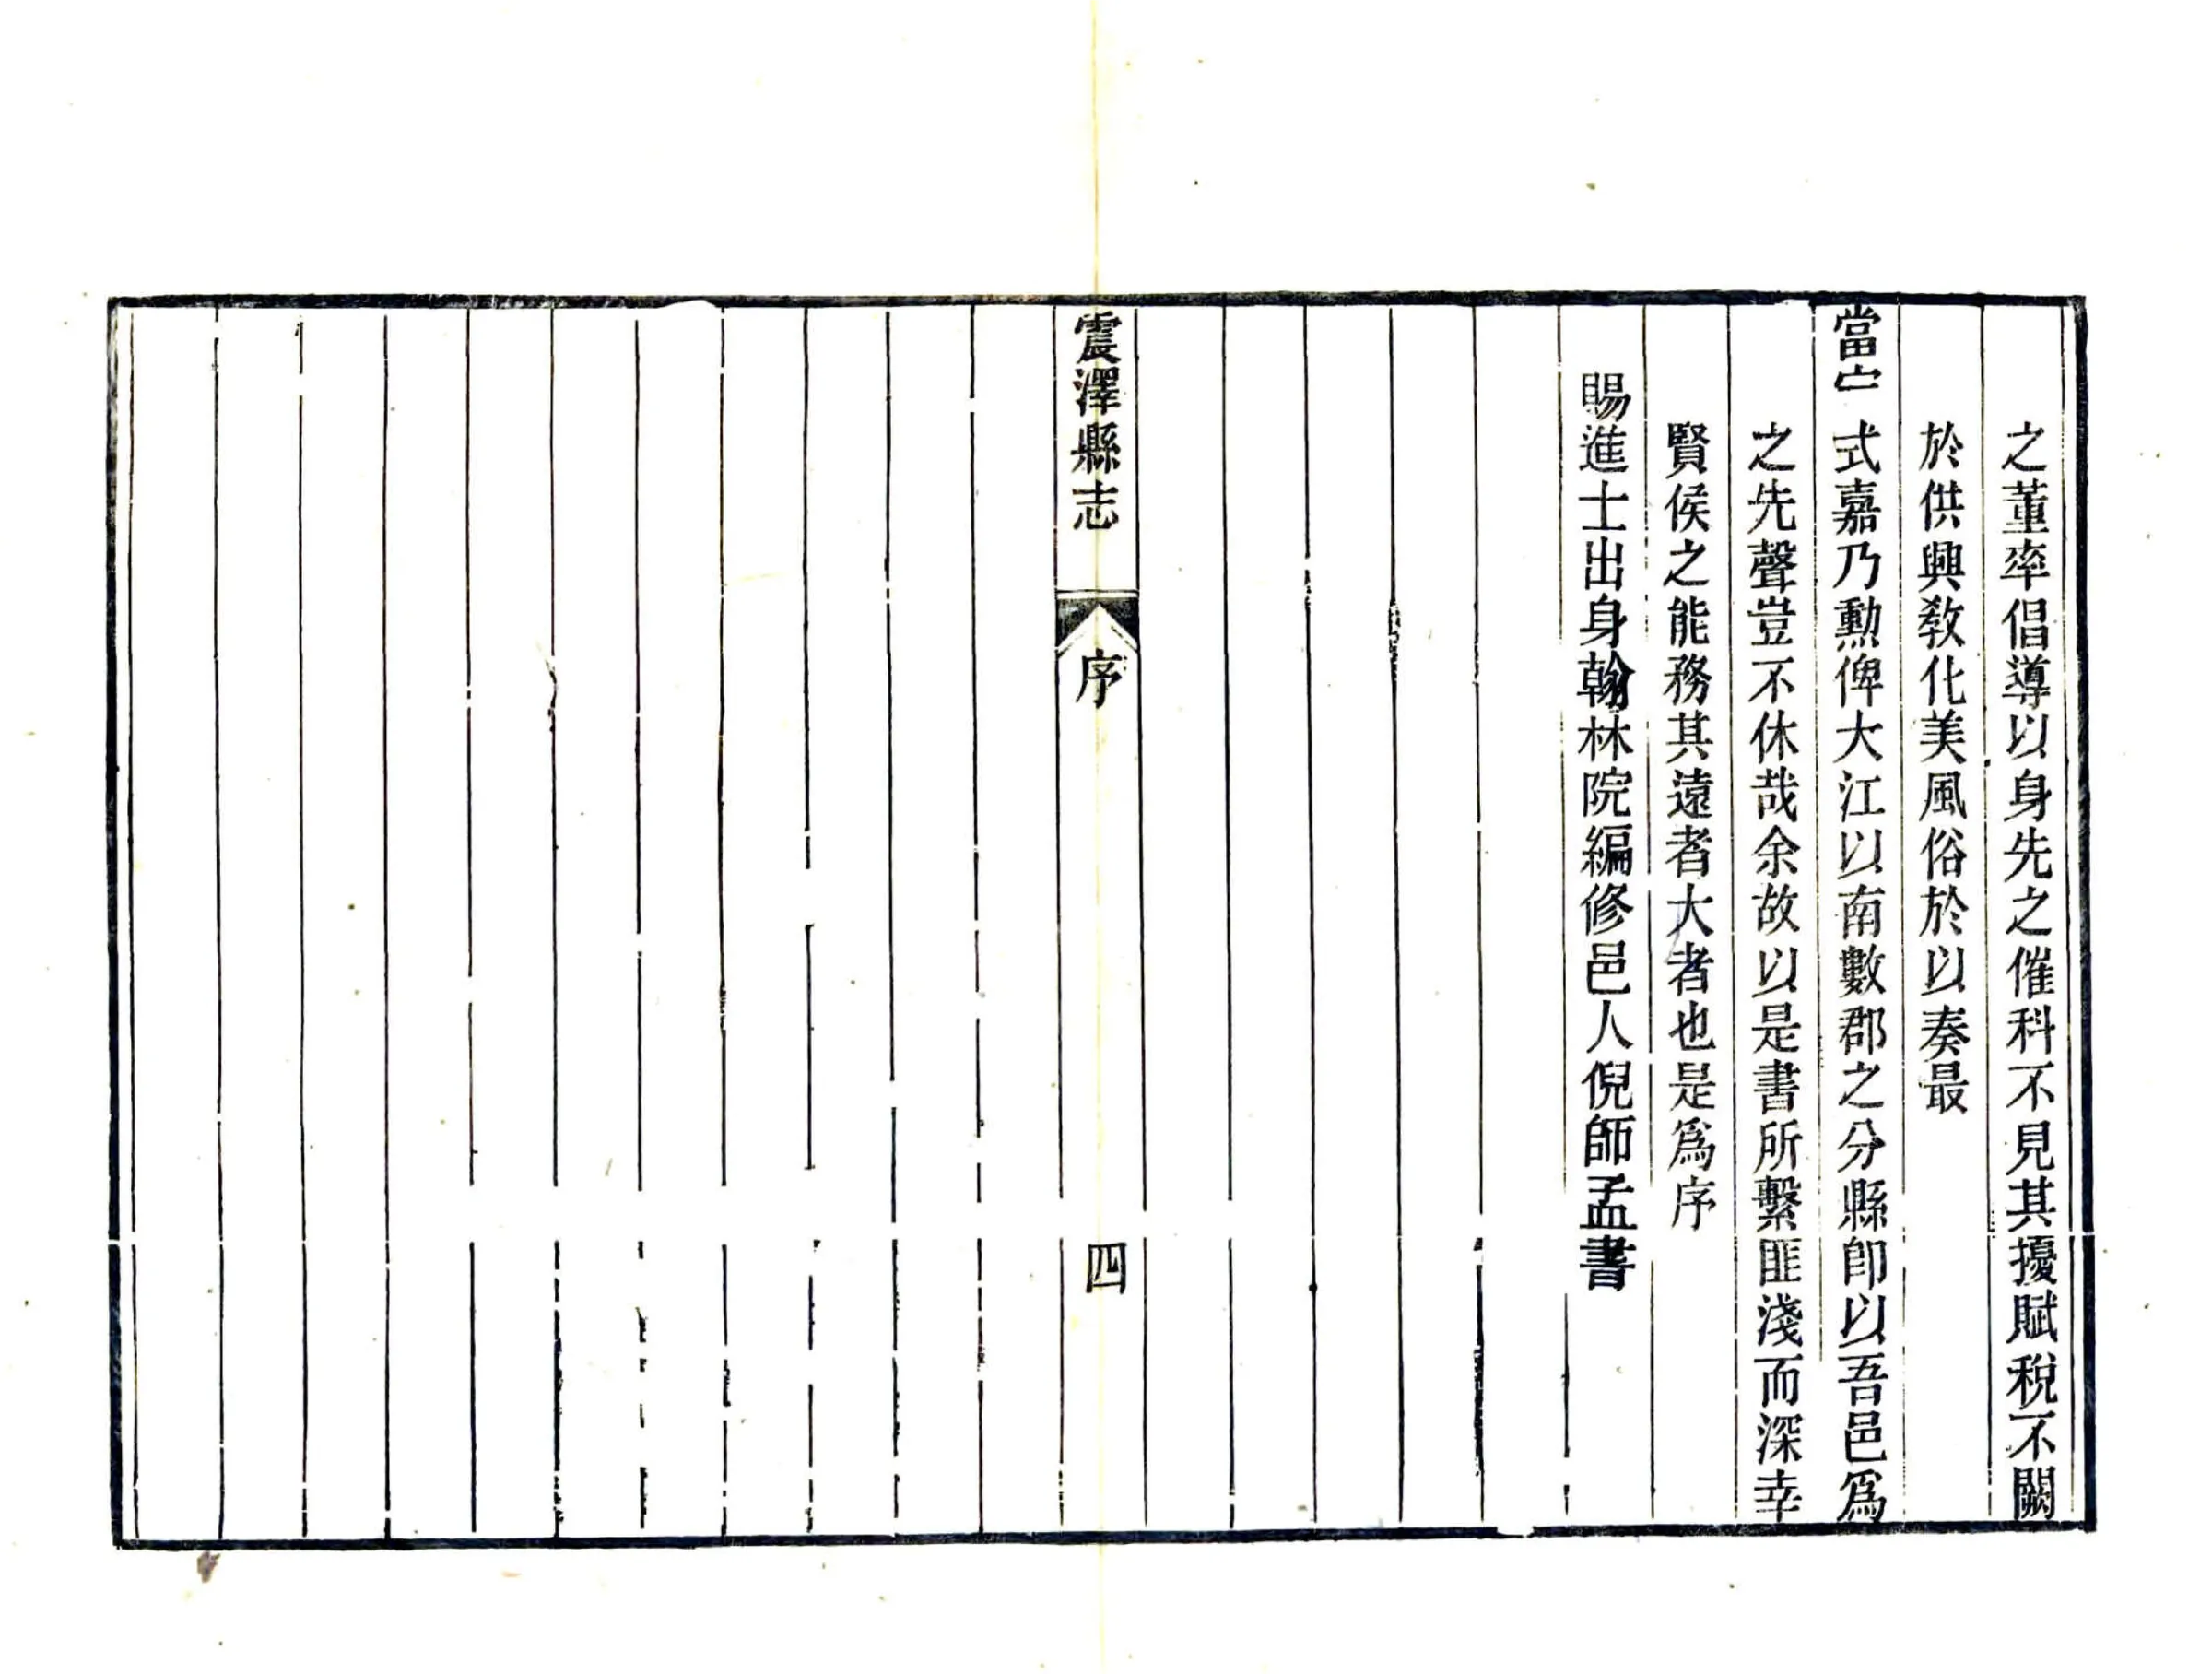 之董率倡導以身先之催科不見其擾賦稅不闕
於供興敎化美風俗於以奏最
當宁式嘉乃勳俾大江以南數郡之分縣卽以吾邑爲
之先聲豈不休哉余故以是書所繫匪淺而深幸
賢侯之能務其遠者大者也是爲序
賜進士出身翰林院編修邑人倪師孟書
震澤縣志 序 四